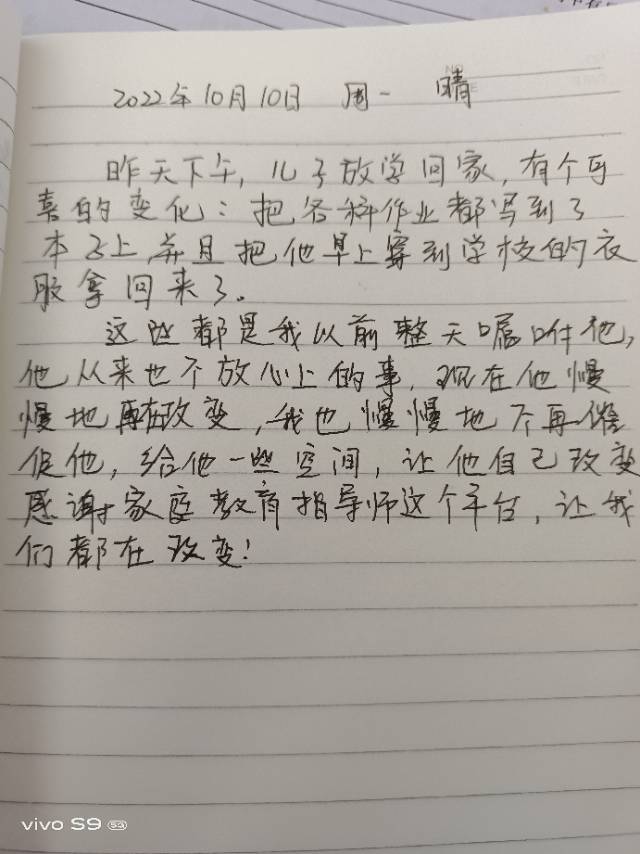 2022年10月10日 周一 晴
昨天下午,儿子放学回家,有个可
喜的变化:把各科作业都写到了
本子上,并且把他早上穿到学校的衣
服拿回来了。
这些都是我以前整天嘱咐他,
他从来也不放心上的事,现在他慢
慢地再在改变,我也慢慢地不再催
促他,给他一些空间,让他自己改变
感谢家庭教育指导师这个平台,让我
们都在改变!
vivo S9